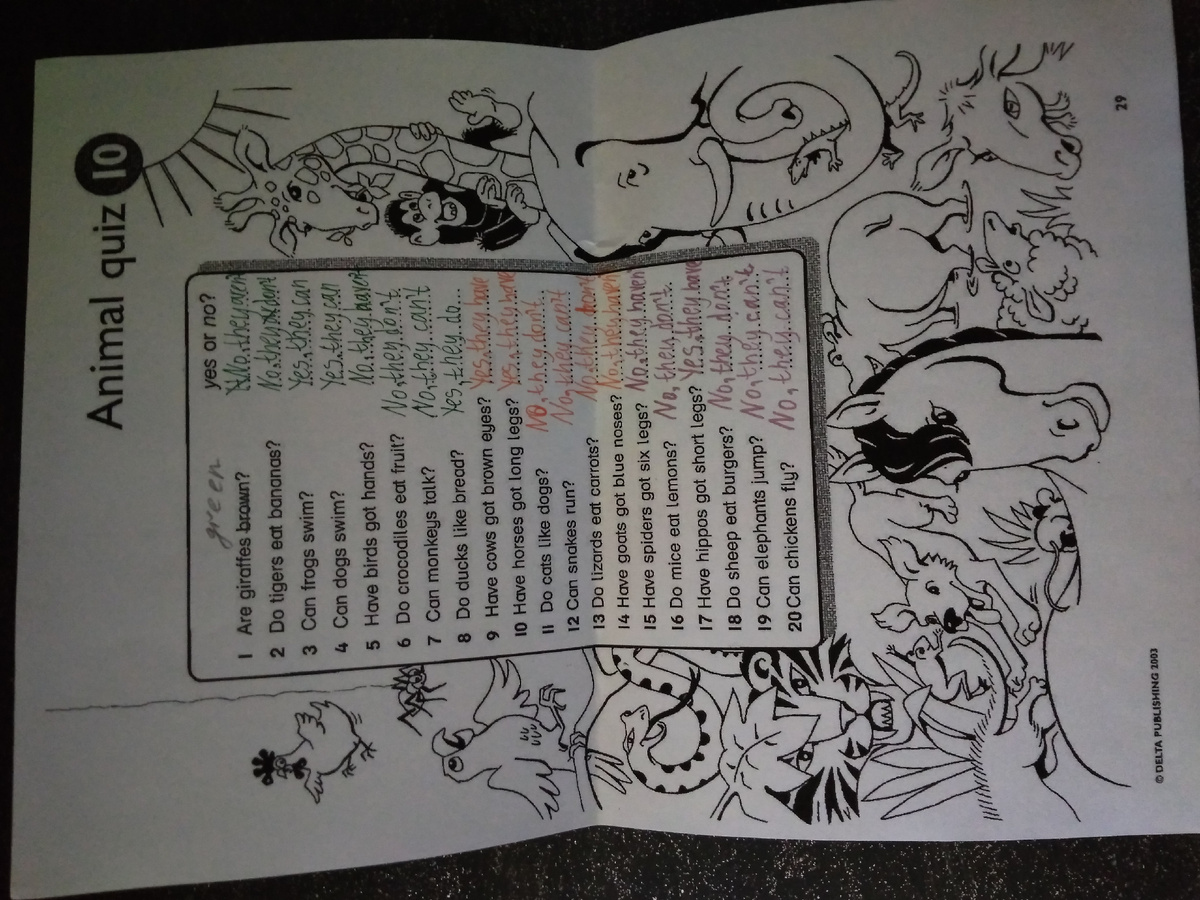 Animal quiz 10
green
yes or no?
1 Are giraffes brown? No, they aren't
2 Do tigers eat bananas? No, they don't
3 Can frogs swim? Yes, they can
4 Can dogs swim? Yes, they can
5 Have birds got hands? No, they haven't
6 Do crocodiles eat fruit? No, they don't
7 Can monkeys talk? No, they can't
8 Do ducks like bread? Yes, they do
9 Have cows got brown eyes? Yes, they have
10 Have horses got long legs? Yes, they have
11 Do cats like dogs? No, they don't
12 Can snakes run? No, they can't
13 Do lizards eat carrots? No, they don't
14 Have goats got blue noses? No, they haven't
15 Have spiders got six legs? No, they haven
16 Do mice eat lemons? No, they don't
17 Have hippos got short legs? Yes, they have
18 Do sheep eat burgers? No, they don't
19 Can elephants jump? No, they can't
20 Can chickens fly? No, they can't
© DELTA PUBLISHING 2003
29